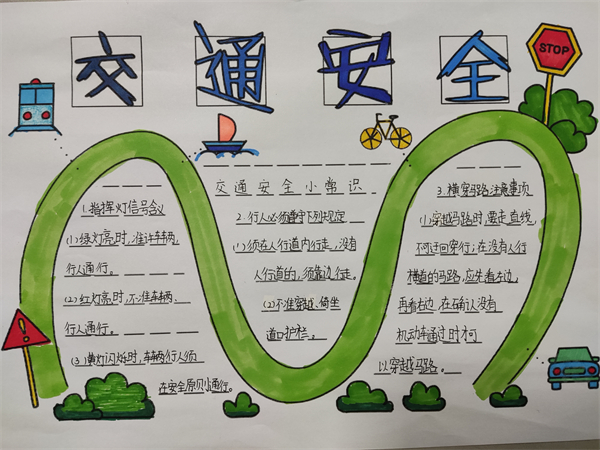 交通安全
STOP
1.指挥灯信号含义
(1)绿灯亮时,准许车辆、
行人通行。
(2)红灯亮时,不准车辆、
行人通行。
(3)黄灯闪烁时,车辆行人须
在安全原则下通行。
交通安全小常识
2.行人必须遵守下列规定
(1)须在人行道内行走,没有
人行道的,须靠边行走。
(2)不准穿越、倚坐
道口护栏。
3.横穿马路注意事项
(1)穿越马路时,要走直线,
不可迂回穿行;在没有人行
横道的马路,应先看左边,
再看右边,在确认没有
机动车通过时才可
以穿越马路。